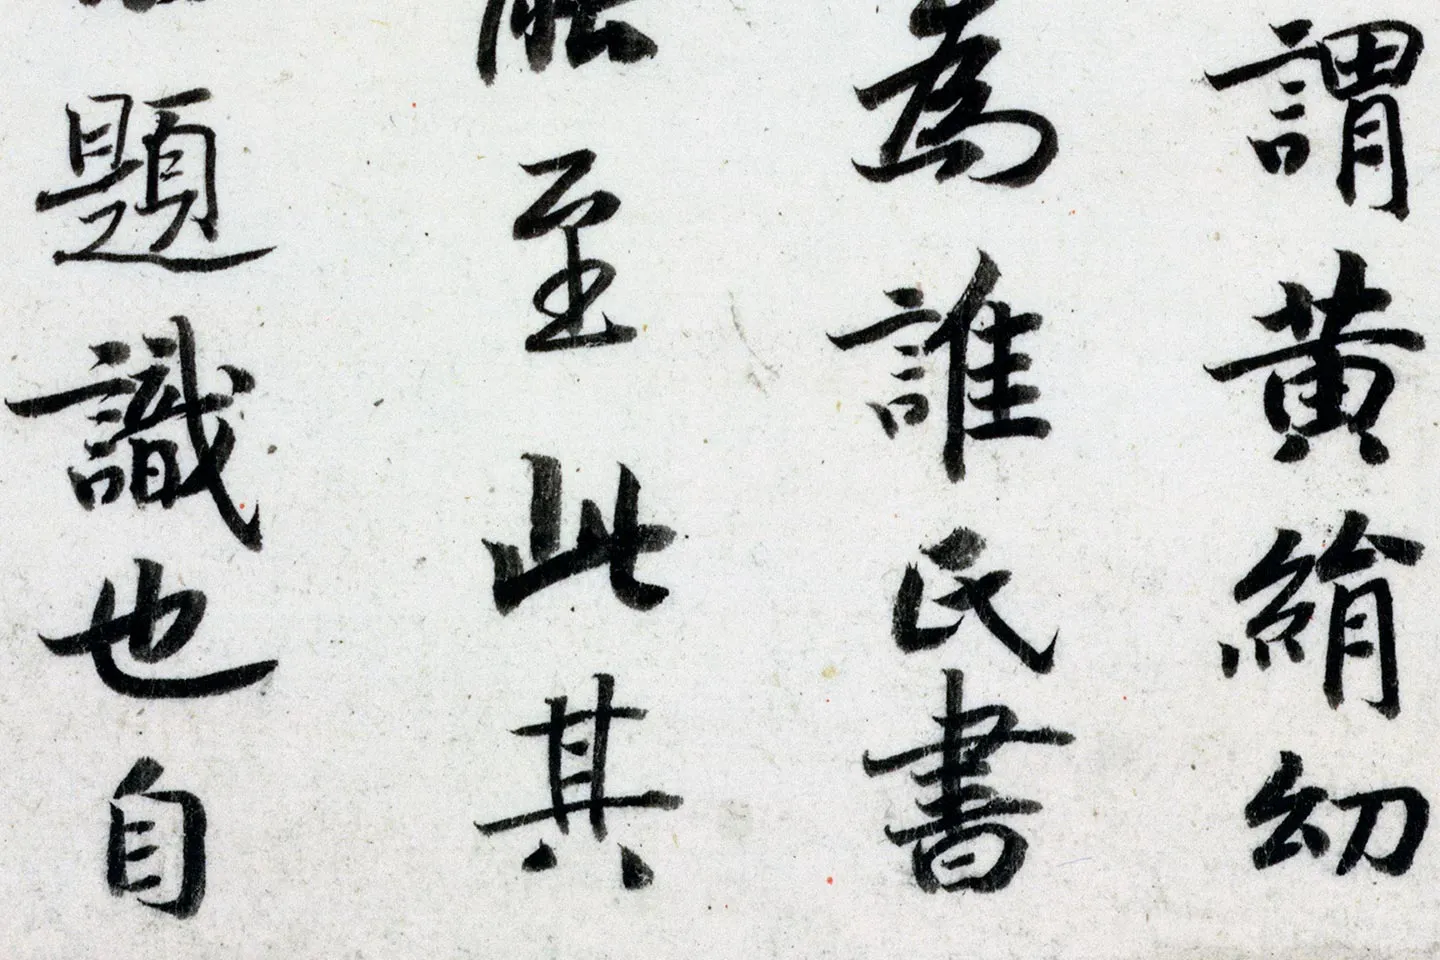 謂黄絹幼
為誰氏書
能至此其
題識也自